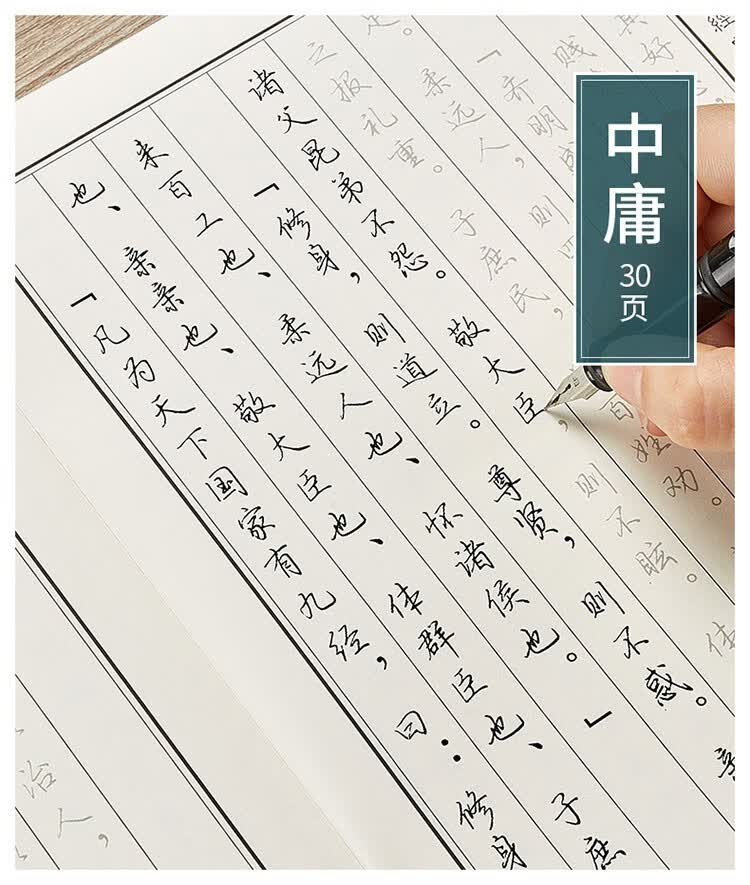 中庸
30
页
「凡为天下国家有九经，曰：修身
也、亲亲也、敬大臣也、体群臣也、子庶
来百工也、柔远人也、怀诸侯也。」
「修身，则道立。尊贤，则不惑。亲
诸父昆弟不怨。敬大臣，则不眩。体
之报礼重。子庶民，则百姓劝。
足。柔远人，则四
「齐明盛
贱
其好
经
治人，